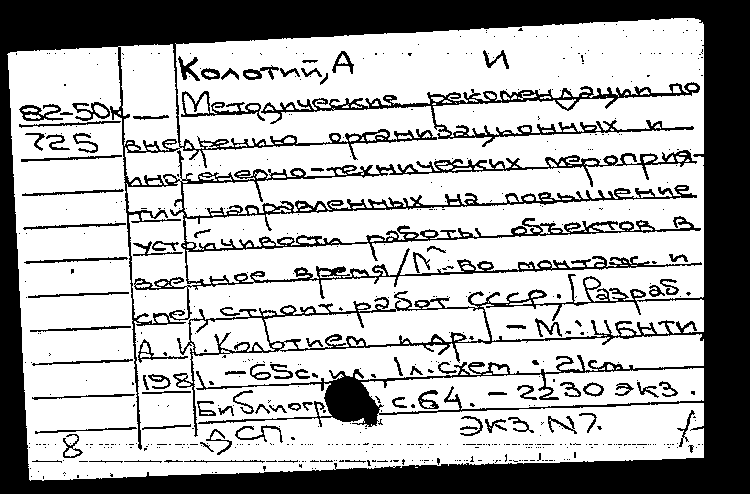 Колотий, А И
82-50к Методические рекомендации по
725 внедрению организационных и
инженерно-технических мероприя-
тий, направленных на повышение
устойчивости работы объектов в
военное время / М-во монтаж. и
спец. строит. работ СССР. [Разраб.
А. И. Колотием и др.]. - М.: ЦБНТИ,
1981. - 65 с., ил., 1 л. схем. ; 21 см.
Библиогр. с. 64. - 2230 экз.
8 ДСП. экз. N7.